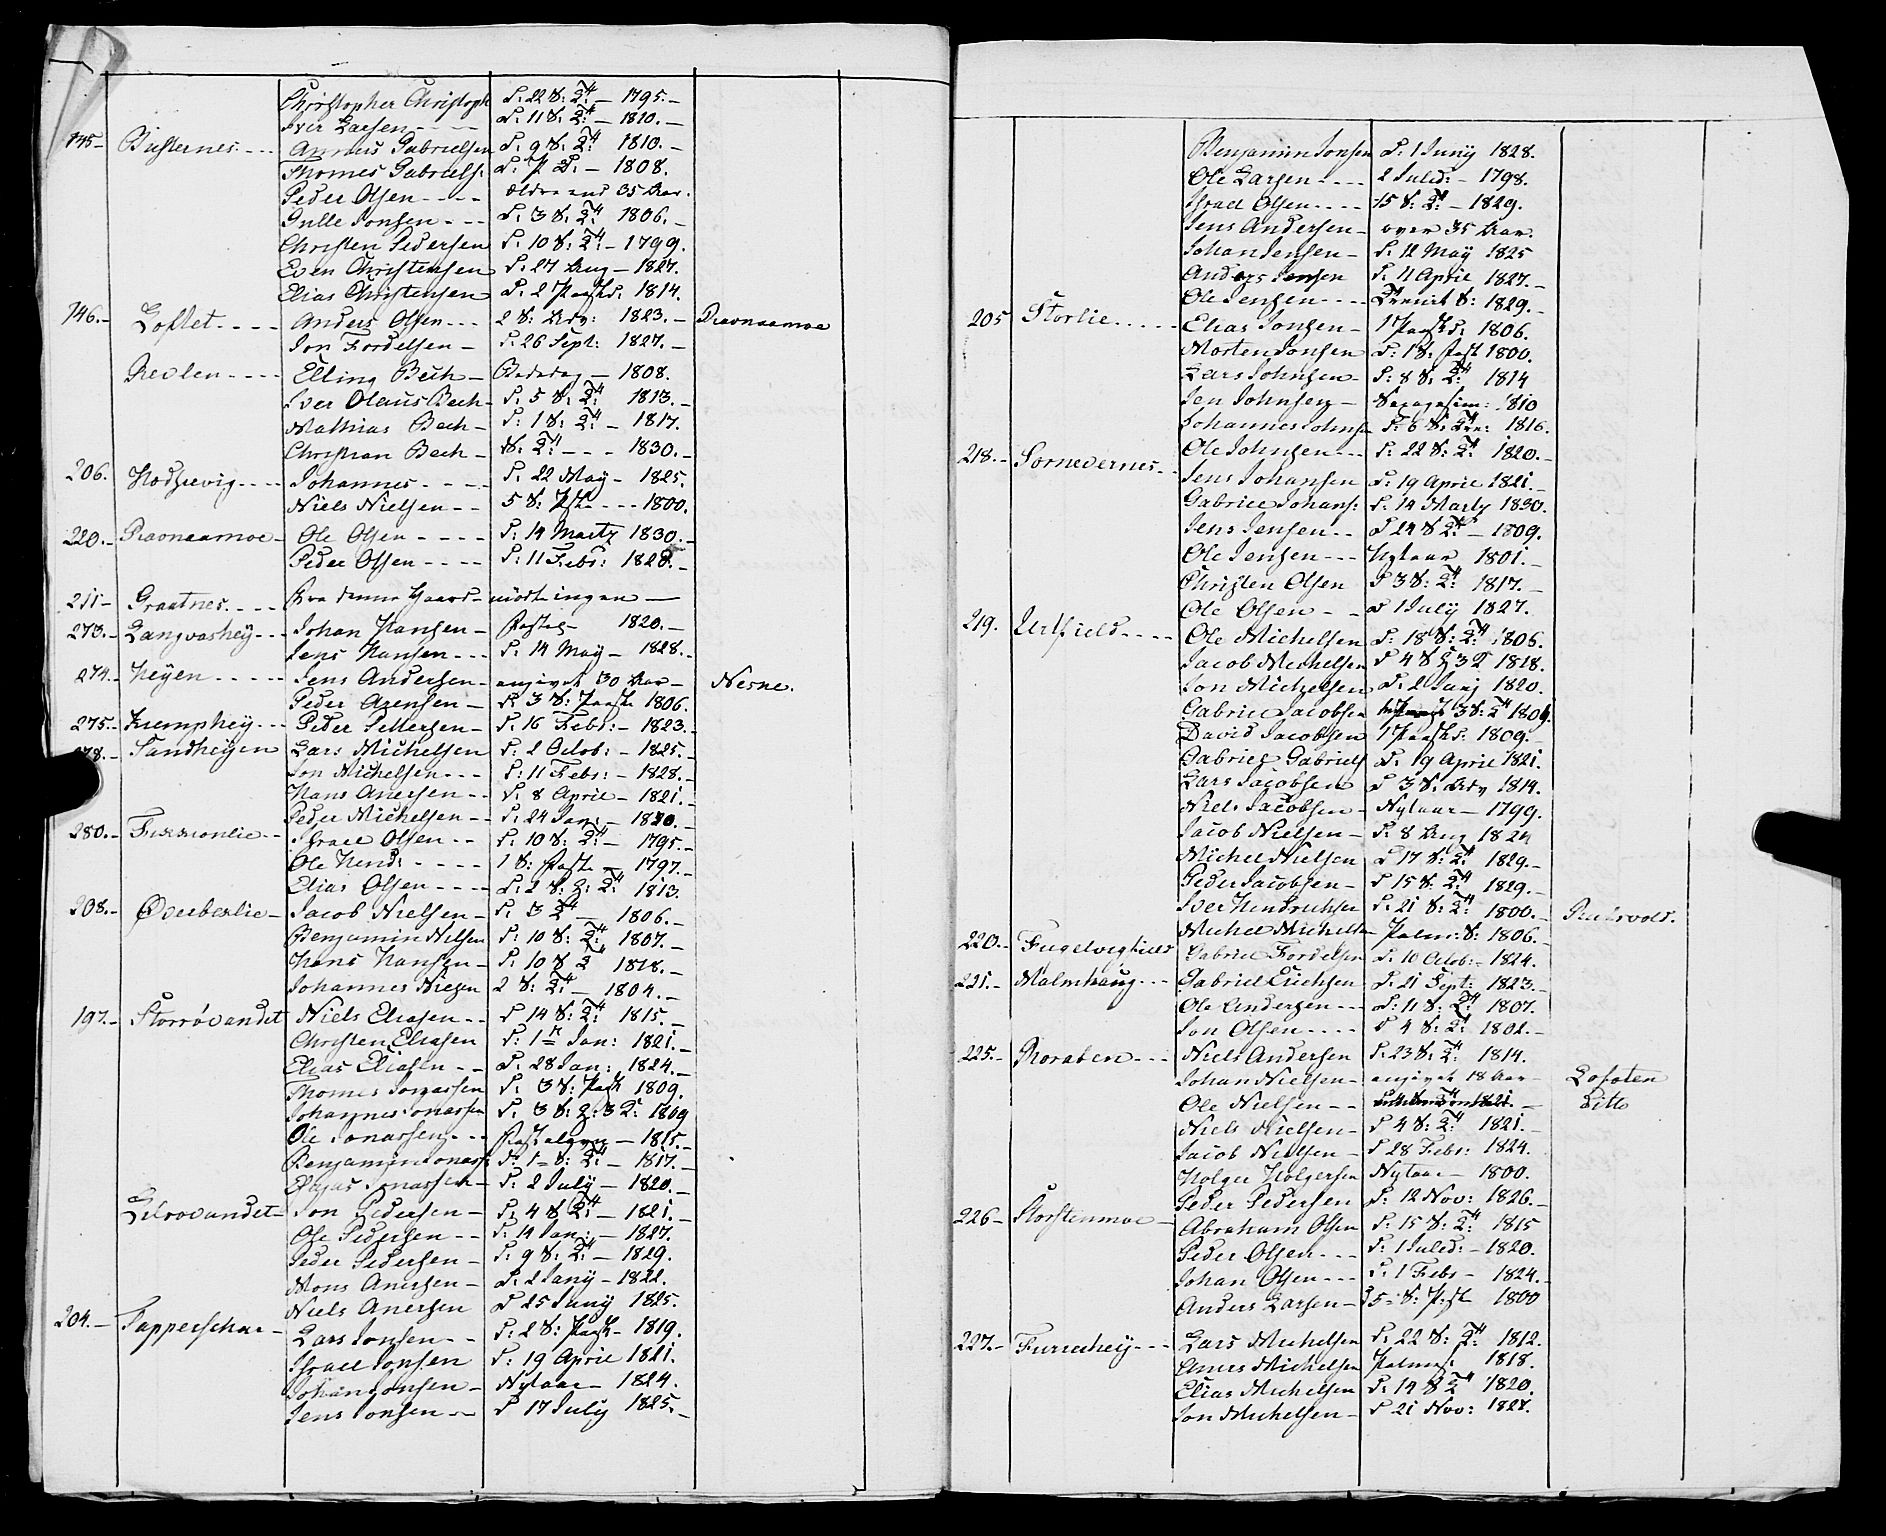 Christopher Christoph D: 22 S: 2 4 — 1795. —
Iver Larsen - - - - D: 11 S: 2 4 — 1810. —
145 — Busternes - - - Anners Gabrielsen D: 9 S: 2 4 1810. —
Thomes Gabriels: D: — 1808.
Peder Olsen - - - - Ældre end 35 Aar.
Gulle Jonsen - - - D: 3 S: 2 4 1806. —
Christen Pedersen D: 10 S: 2 4 — 1799.
Even Christensen D: 27 Aug — 1827.
Elias Christensen D: 2 Paaskd: 1814.
146. — Loftet - - - - Anders Olsen - - - 2 S: Adv: 1823. — Ravnaamoe
Jon Fordelsen — D: 26 Sept: 1827. —
Revlen - - - - Elling Bech — Bededag — 1808.
Iver Olaus Bech - D: 5 S: 2 4 1813. —
Mathias Bech — D: 1 S: 2 4 — 1817.
Christian Bech — S: 2 4 - - - 1830. —
206. Hodsevig - - - - Johannes - - - - D: 22 May — 1825.
Niels Nielsen - - 5 S: Pske - - - 1800.
220. — Ravnaamoe — Ole Olsen - - - - D: 14 Martz 1830. —
Peder Olsen - - - - D: 11 Febr: 1828. —
211 — Graatnes - - - - Fra denne Gaard mödte ingen —
273. — Langvashey - - - Johan Hansen — 1820. —
Jens Hansen - - - D: 14 May — 1828. —
274. — Heyen - - - - - Jens Andersen — angivet 30 Aar — Nesne.
Peder Arensen — D: 3 S: Paask 1806.
275. — Kremphey - - - Peder Sellersen — D: 16 Febr: — 1823.
278. — Sandheyen Lars Michelsen D: 2 Octob: — 1825. —
Jon Michelsen - - - D: 11 Febr: — 1828. —
Hans Anersen - - D: 8 April — 1821. —
Peder Michelsen - - D: 24 Jan: — 1820. —
280. — Furmonlie - - Israel Olsen - - D: 10 S: 2 4 — 1795. —
Ole Hend: - - - - 1 S: Paask — 1797. —
Elias Olsen - - - - D: 2 S: 2 4 1813.
208. — Överberlie — Jacob Nielsen — D: 3 2 4 — 1806. —
Benjamin Nilsen D: 10 S: 2 4 1807. —
Hans Hansen — D: 10 S 2 4 1818. —
Johannes 2 S: 2 4 — 1804. —
197. — Storrövandet Niels Eliasen - - D 14 S: 2 4 1815. —
Christen Eliasen D: 1 Jan: 1821. —
Elias Eliasen - - D: 28 Jan: 1824. —
Thomes Jonassen D: 3 S: Pask 1809.
Johannes Jonassen D: 3 S: 1809
Ole Jonassen - - - — 1815. —
Benjamin Jonass: D: 1 S: 2 4 — 1817. —
Elias Jonassen — D: 2 July — 1820. —
Lilrovandet — Jon Pedersen — D: 4 S 2 4 — 1821. —
Ole Pedersen - - D: 14 Jan: — 1827.
Peder Pedersen — D: 9 S: 2 4 — 1829.
Mons Anersen — D: 2 Juny — 1822.
Niels Anersen D 25 Juny 1825.
204. — Tapperschar — Lars Jonsen - - D: 2 S: Paask — 1819.
Israel Jonsen D: 19 April 1821.
Johan Jonsen — Nytaar — 1824.
Jens Jonsen - - D 17 July 1825. —
Benjamin Jonsen D: 1 Juny 1828.
Ole Larsen - - - - 2 Juled: — 1798.
Israel Olsen - - - - 15 S: 2 4 — 1829.
Jens Andersen — over 35 Aar.
Johan Jensen — D: 12 May 1825
Anders Jensen D: 11 April 1827. —
Ole Jensen - - - - S: 1829. —
205 Storlie - - - - - Elias Jonsen — 1 Paaskd: 1806.
Morten Jonsen D: 1 S: Past 1800.
Lars Johnsen — D: 8 S: 2 4 1814
Jon Johnsen — 1810
Johannes Johns: D: 6 S: 1816.
218. — Sornevernes - - Ole Johnsen - - - D: 22 S: 2 4 1820. —
Jens Johansen D: 19 April 1821. —
Gabriel Johans: D: 14 Martz 1830.
Jens Jensen - - D 24 S 2 4 — 1809.
Ole Jensen - - - Nytaar 1801. —
Christen Olsen D 3 S: 2 4 1817. —
Ole Olsen - - D 1 July 1827.
219. Urtfield - - - - Ole Michelsen D: 18 S: 2 4 1806.
Jacob Michelsen D 4 S 1818.
Jon Michelsen D: 2 Juni 1820.
Gabriel Jacobsen 3 S: 2 4 1804.
David Jacobsen 1 Paaskd: 1809 —
Gabriel Gabriels D: 19 April 1821.
Lars Jacobsen D 3 S: Adv 1814.
Niels Jacobsen — Nytaar — 1799.
Jacob Nielsen — D: 8 Aug 1824
Michel Nielsen D 17 S: 2 4 1829. —
Peder Jacobsen — D 15 S: 2 4 1829. —
Iver Hendrichsen D: 21 S: 2 4 1800. —
Michel Michelsen Palm: S: 1806. —
220. — Fugelvigfield Gabriel Fordelsen D: 10 Octob: — 1824.
221. — Malmhaug - - - Gabriel Erichsen D: 21 Sept: 1823. —
Ole Andersen - - - D: 11 S: 2 4 1807.
Jon Olsen - - - - D 4 S: 2 4 1802. —
225. — Roraben - - - Niels Andersen D: 23 S: 2 4 1814.
Johan Nielsen — angivet 18 Aar — Lofoten
Ole Nielsen - - 1821. — Ditto
Niels Nielsen — D 4 S: 2 4 1821. —
Jacob Nielsen — D 28 Febr: 1824.
Holger Holgersen Nytaar — 1800.
Peder Pedersen D: 12 Nov: 1826. —
226 — Storstenmoe — Abraham Olsen D: 15 S: 2 4 1815
Peder Olsen - - - D: 1 Juled: — 1820.
Johan Olsen - - - D: 1 Febr — 1824. —
Anders Larsen — 5 S: Past 1800
227. — Furrehey - - - Lars Michelsen D: 22 S: 2 4 1812.
Aners Michelsen Palmes: 1818.
Elias Michelsen D: 14 S 2 4 1820.
Jon Michelsen — D 21 Nov: 1828.